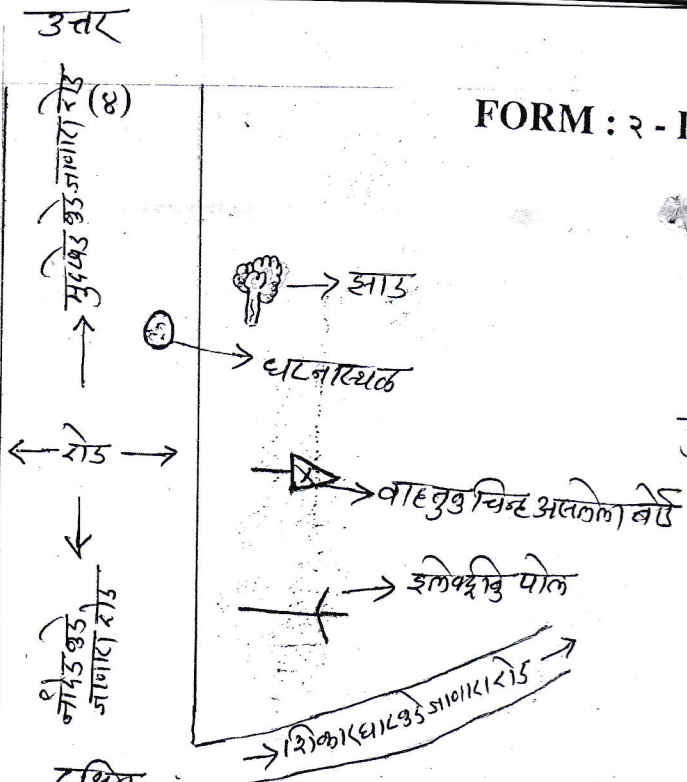 उत्तर
(४)
FORM : २ -
मुदखेड कडे जाणारा रोड
झाड
घटनास्थळ
रोड
वाहतुक चिन्ह असलेला बोर्ड
इलेक्ट्रीक पोल
नांदेड कडे
जाणारा रोड
शिकारघाट कडे जाणारा रोड
दक्षिण